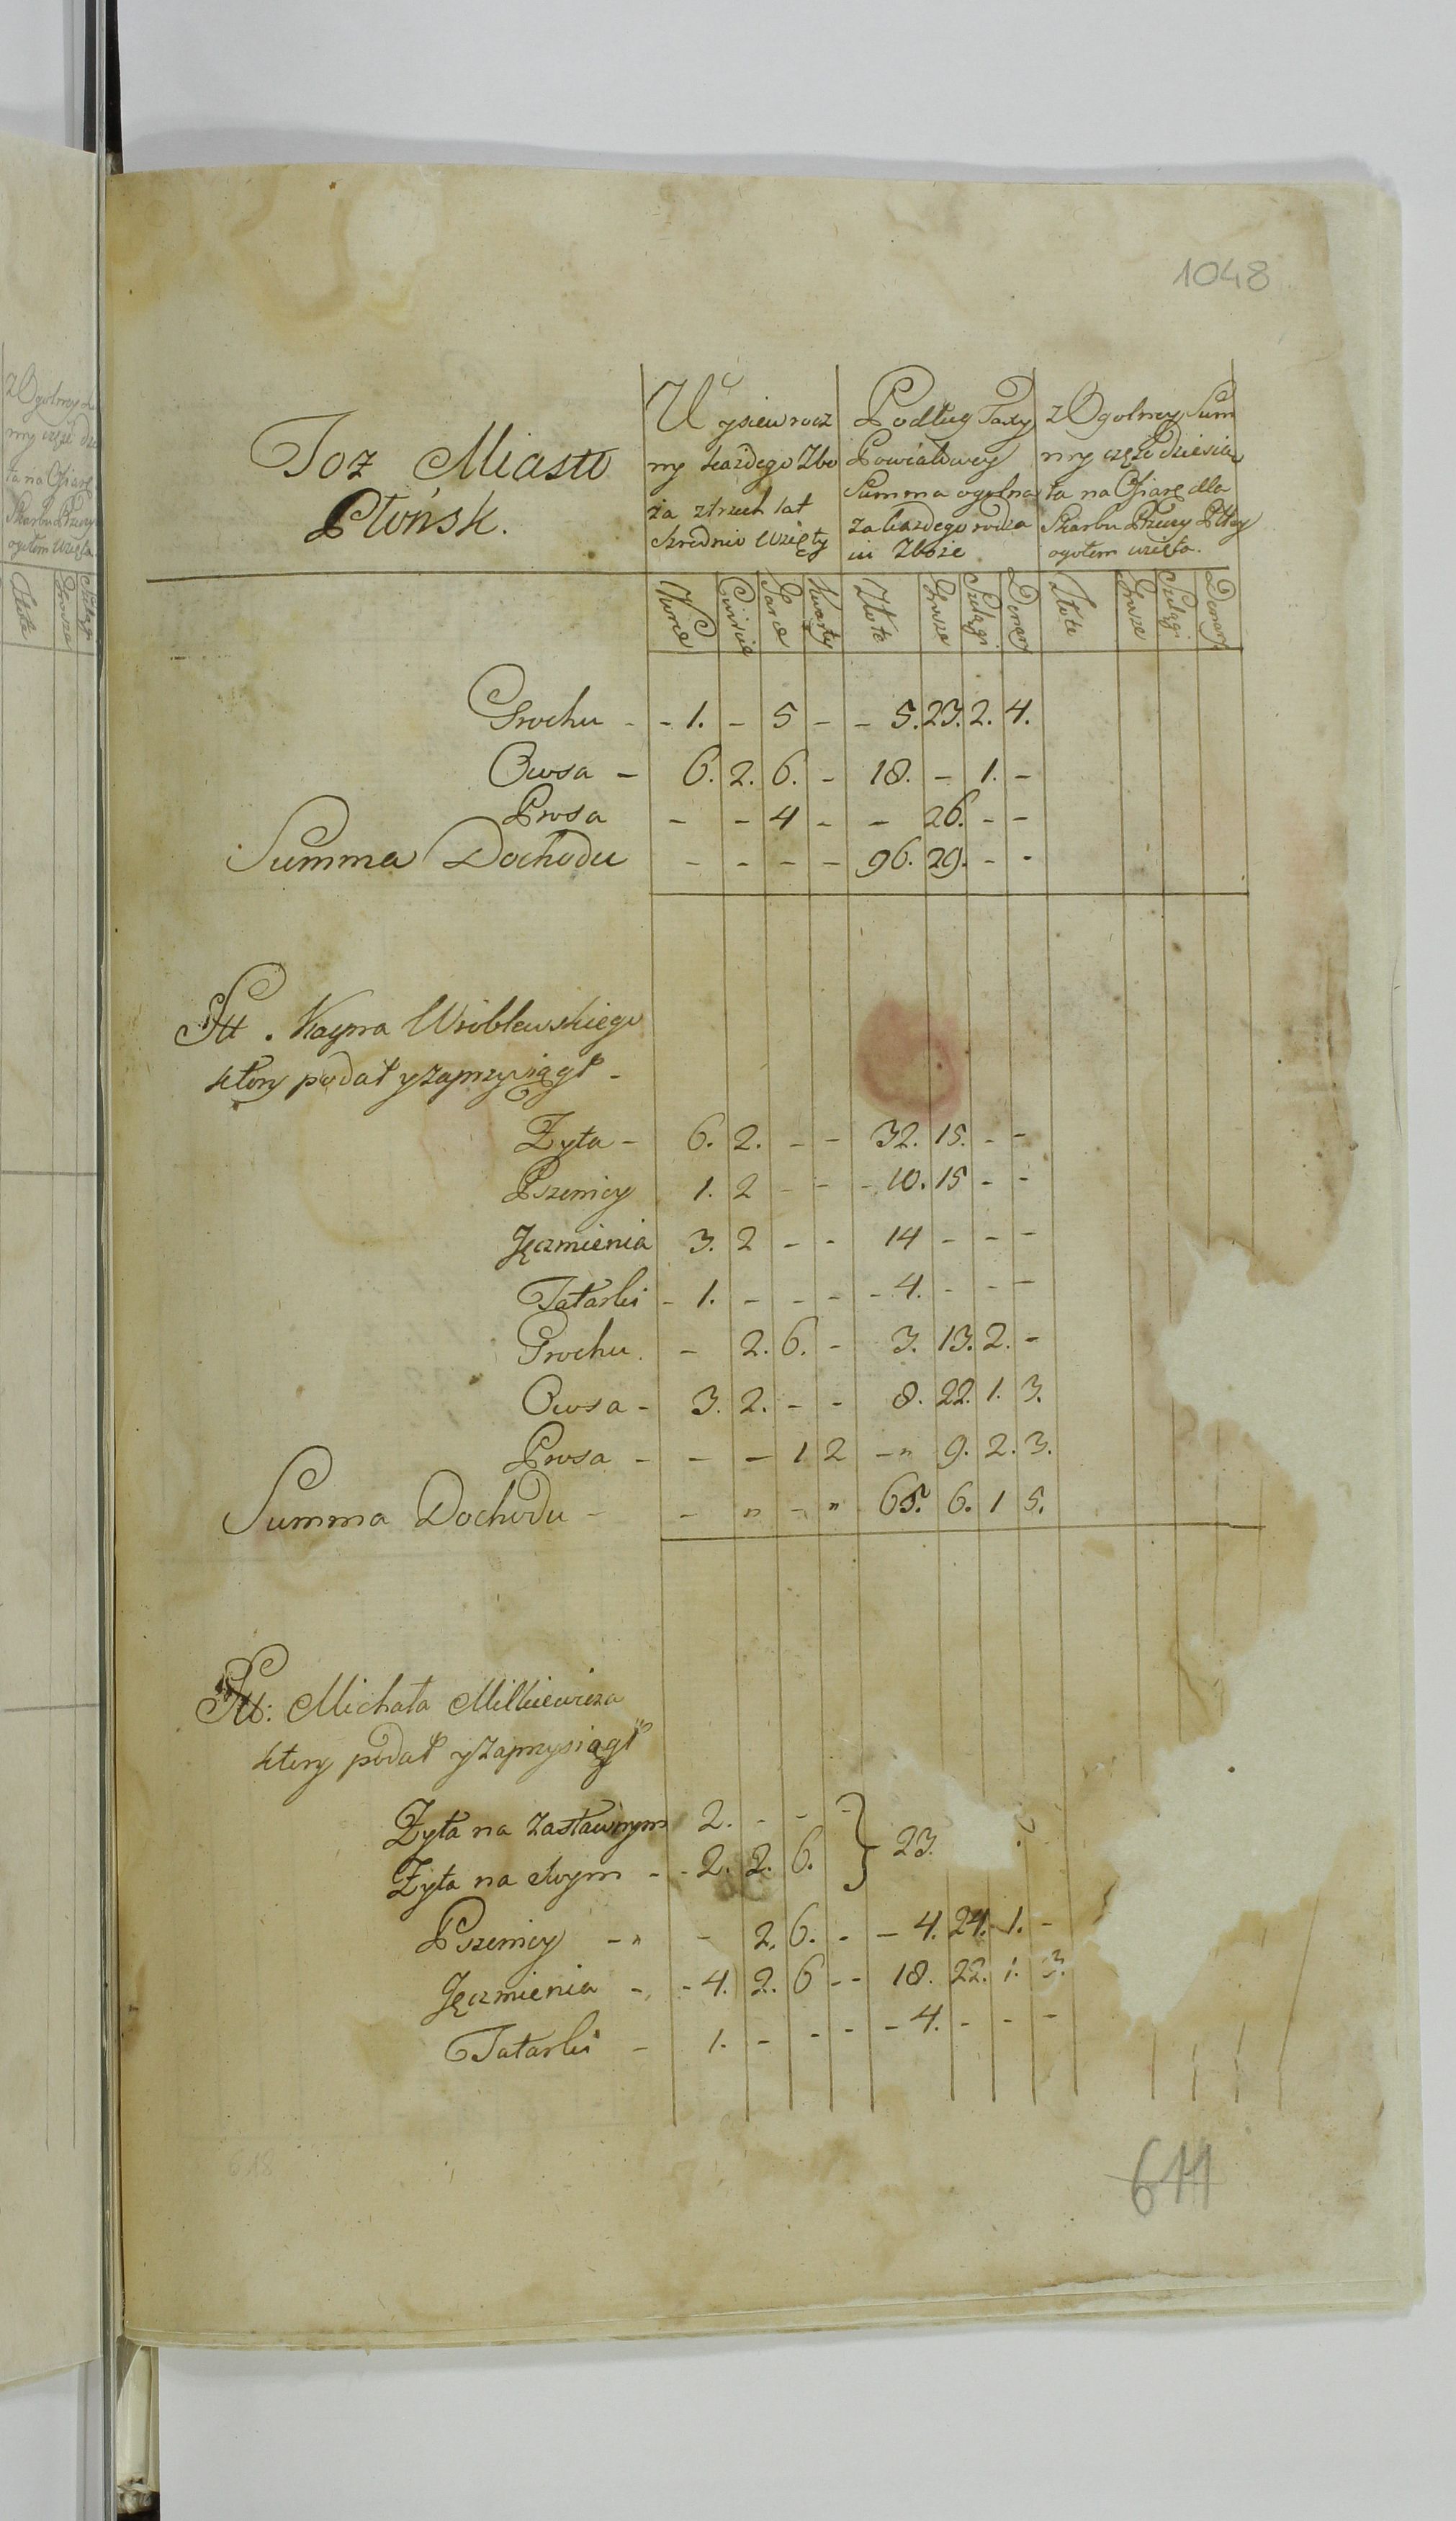 1048
Toż Miasto
Płońsk.
Wysiew rocz
ny każdego Zbo
ża z trzech lat
średnio wzięty
Podług Taxy
Powiatowey
Summa ogolna
za każdego rodza
iu Zboże
z Ogolney Sum
my część dziesią
ta na Ofiarę dla
Skarbu Rzeczy Pltey
ogołem wzięta.
Korce Ćwierci Garce Kwarty Złote Grosze Szelągi Denary Złote Grosze Szelągi Denary
Grochu - - 1. - 5 - - 5. 23. 2. 4.
Owsa - 6. 2. 6. - 18. - 1. -
Prosa - - 4 - - 26. - -
Summa Dochodu - - - - 96. 29. - -
Kacpra Wróblewskiego
ktory podał y zaprzysiągł -
Zyta - 6. 2. - - 32. 15. - -
Pszenicy 1. 2 - - - 10. 15 - -
Jęczmienia 3. 2 - - 14 - - -
Tatarki - 1. - - - - 4. - - -
Grochu. - 2. 6. - 3. 13. 2. -
Owsa - 3. 2. - - 8. 22. 1. 3.
Prosa - - - 1 2 - " 9. 2. 3.
Summa Dochodu - - " - " 65. 6. 1 5.
Michała Milkiewicza
ktory podał y zaprzysiągł
Zyta na zastawnym 2. - - -
Zyta na swym - - 2. 2. 6. } 23.
Pszenicy - " - 2. 6. - - 4. 24. 1. -
Jęczmienia - - 4. 2. 6 - - 18. 22. 1. 3.
Tatarki - 1. - - - - 4. - - -
618
611